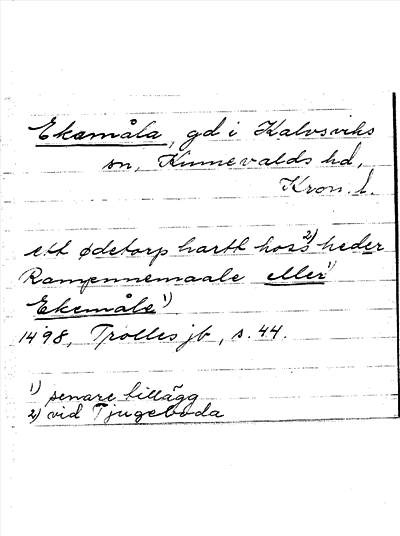 Ekamåla, gd i Kalvsviks
sn, Kinnevalds hd,
Kron. l.
ett ødetorp hartt hoss 2) heder
Rampnnemaale eller 1)
Ekemåle 1)
1498, Trolles jb, s. 44.
1) senare tillägg
2) vid Tjugeboda